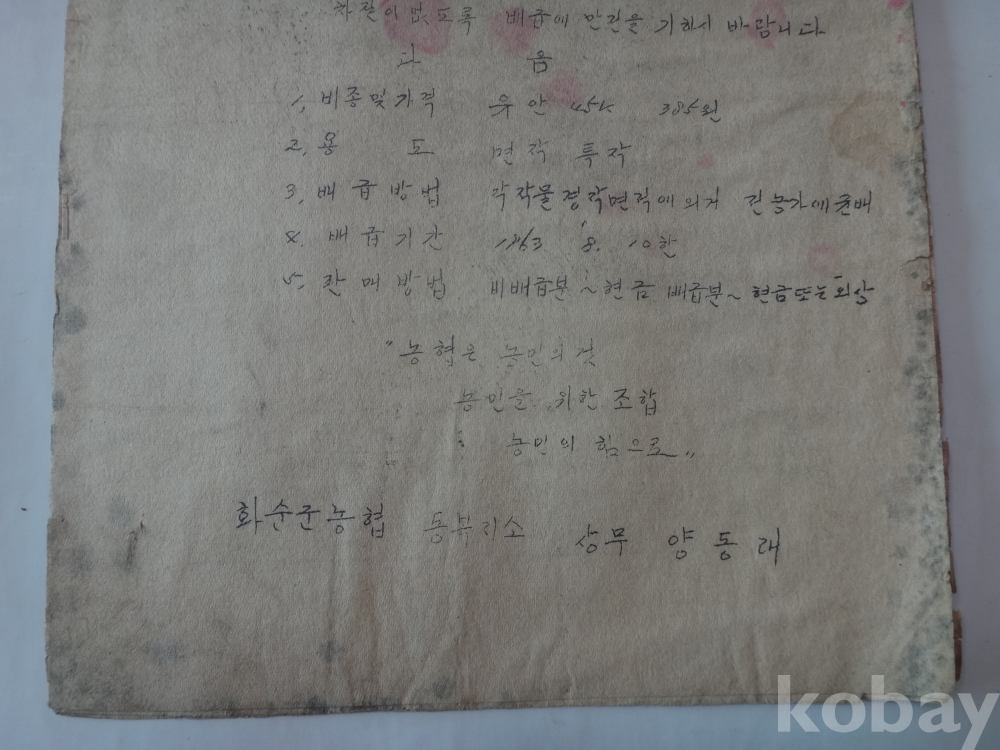 차질이 없도록 배급에 만전을 기하시 바랍니다
다 음
1, 비종및가격 유안 45K 385원
2, 용 도 면작 특작
3, 배급방법 각작물정착면적에의거 전농가에균배
4. 배급기간 1963 8. 10한
5. 판매방법 비배급분~현금 배급분~현금또는외상
"농협은 농민의것
농민을 위한 조합
농민의 힘으로"
화순군농협 동부지소 상무 양동래
kobay